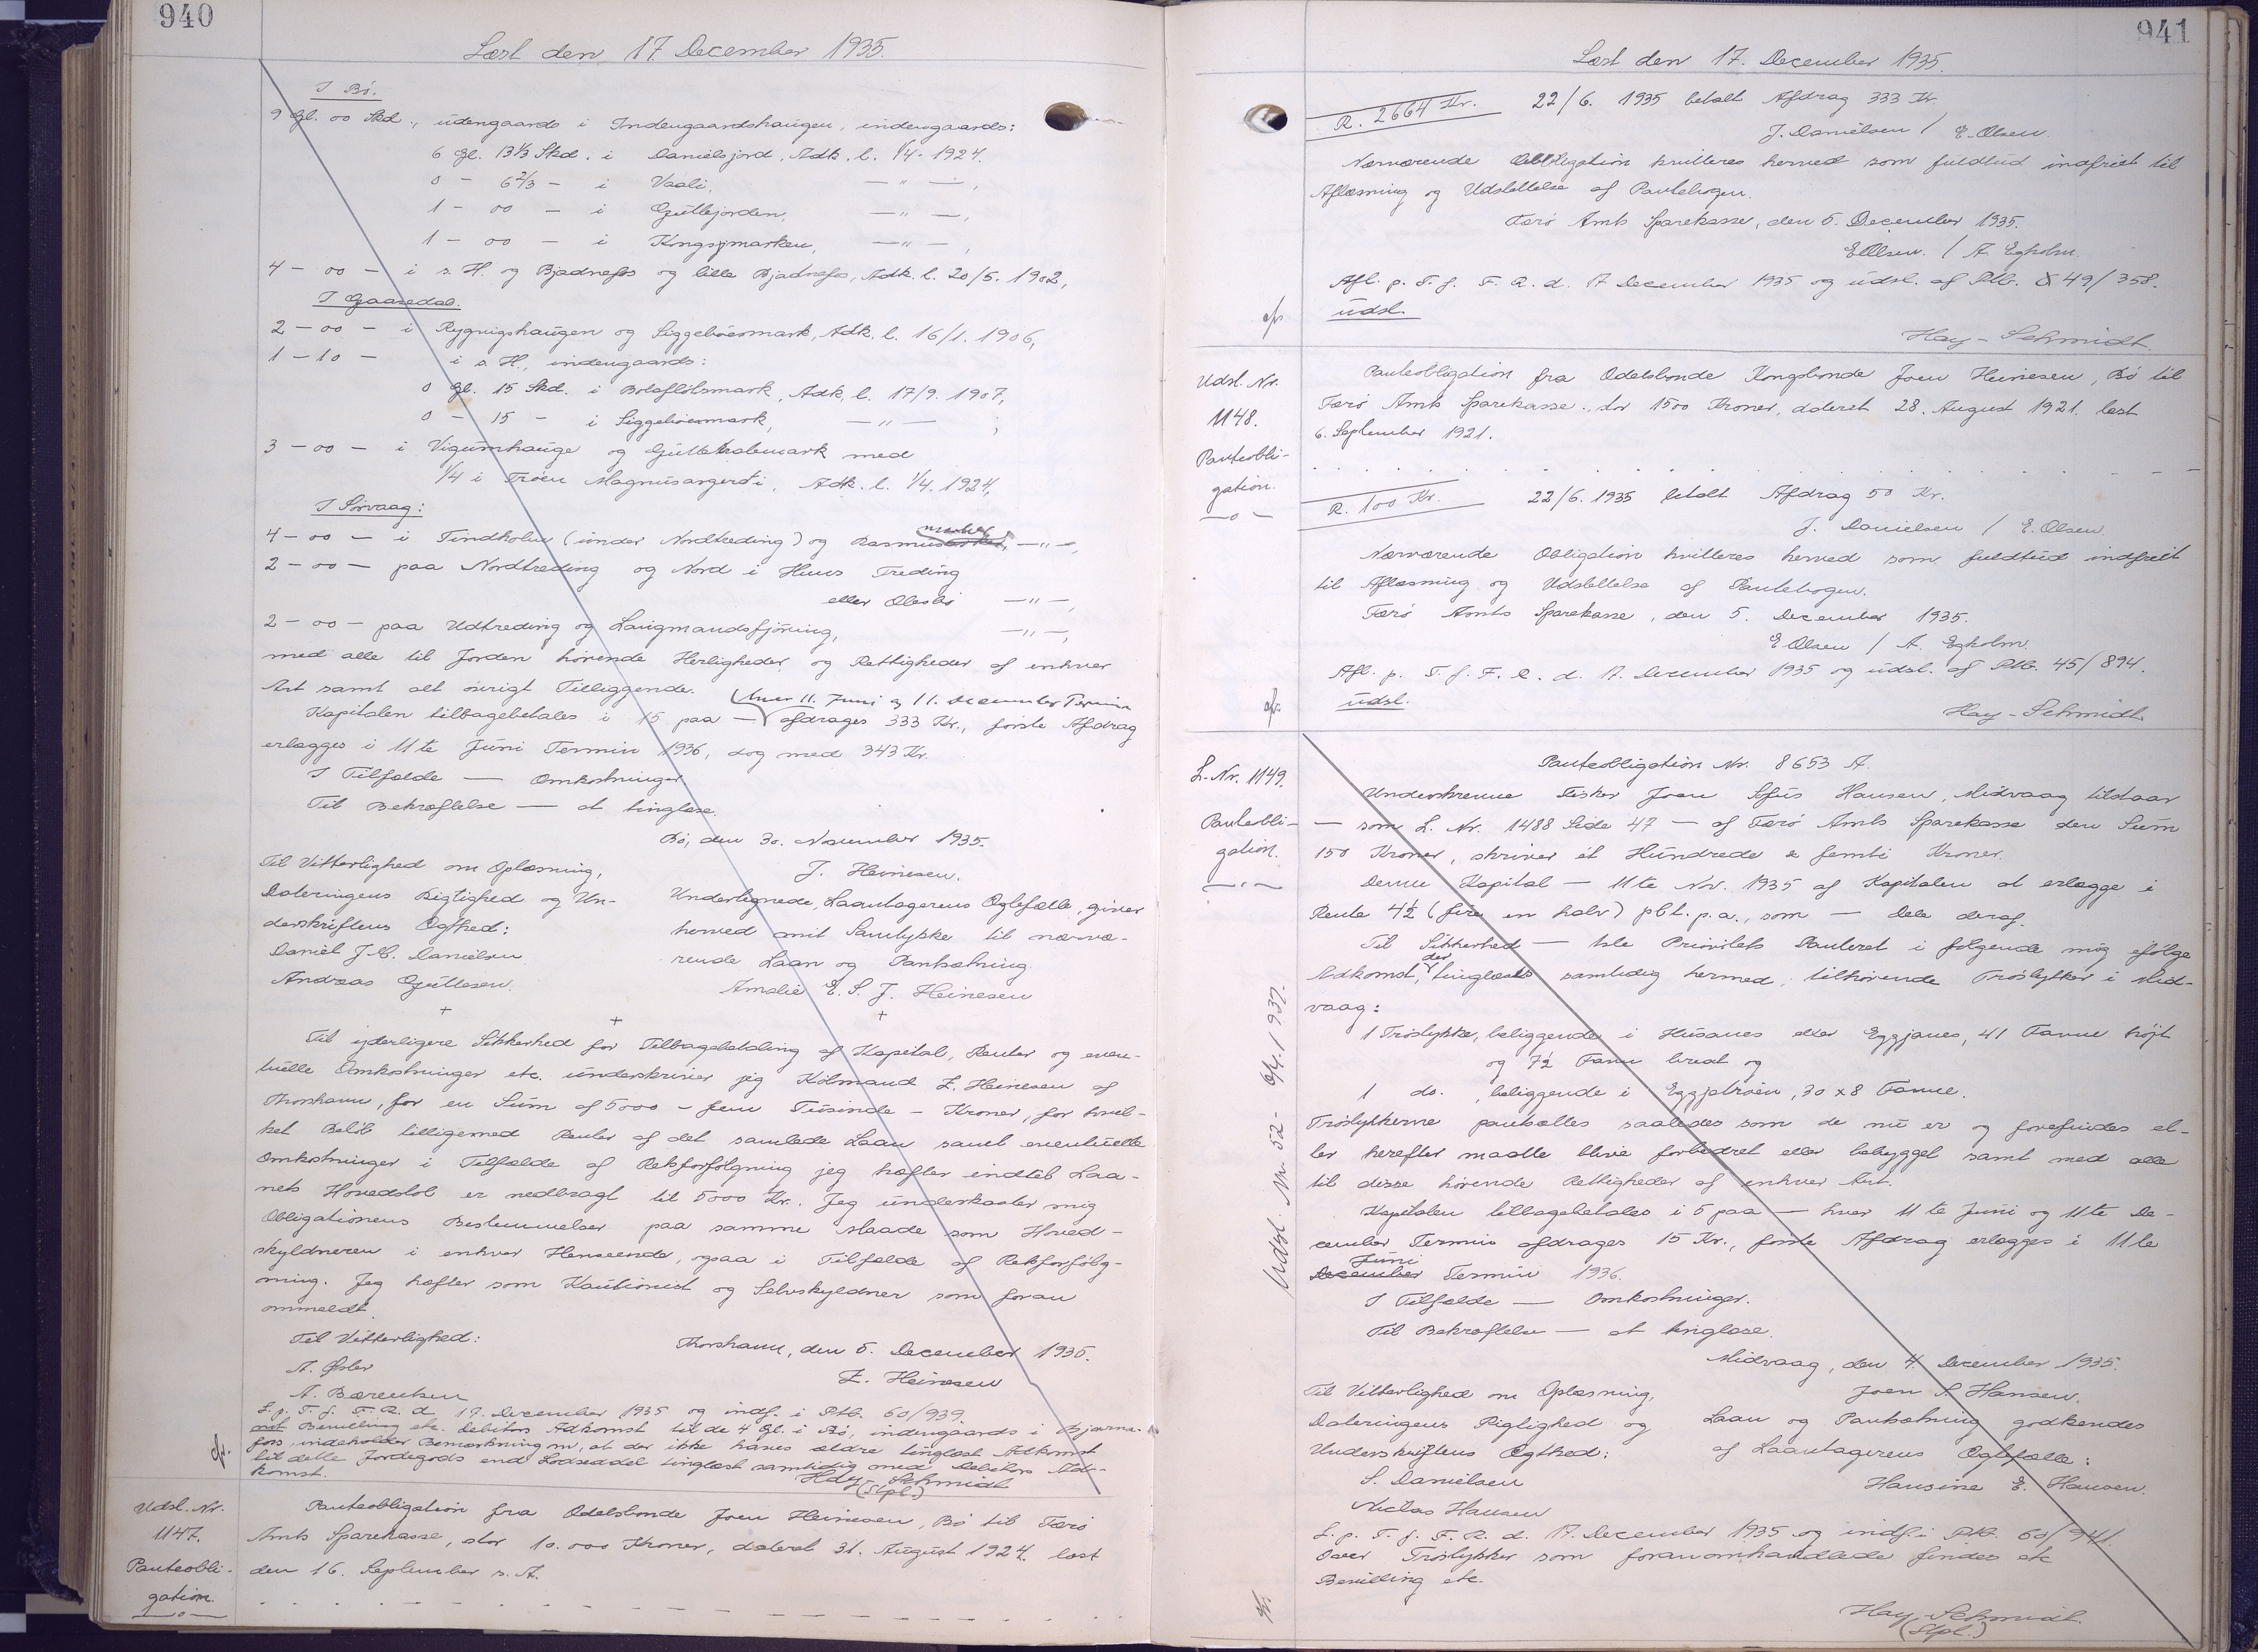 940
Læst den 17. December 1935.
I Bø.
9 Gl. 00 Skd., udengaards i Indengaardshaugen, indengaards:
6 Gl. 13 1/3 Skd. i Danielsjord, Adk. l. 1/4. 1924.
0 - 6 2/3 - i Vaali, — " —,
1 - 00 - i Gutlejorden, — " —,
1 - 00 - i Kongsmarken, — " —,
4 - 00 - i s. H. og Bjadnefos og lille Bjadnefos, Adk. l. 20/5. 1902,
I Gaasedal.
2 - 00 - i Rygnigshaugen og Siggebøesmark, Adk. l. 16/1. 1906,
1 - 10 - i s. H., indengaards:
0 Gl. 15 Skd. i Botsflötsmark, Adk. l. 17/9. 1907,
0 - 15 - i Siggebøesmark, — " — ;
3 - 00 - i Vigumhauge og Gutletrabemark med
1/4 i Tröen Magnusargerdi, Adk. l. 1/4. 1924,
I Sörvaag:
4 - 00 - i Tindholm (under Nordtreding) og Rasmus marker, — " —,
2 - 00 - paa Nordtreding og Nord i Huus Treding
eller Olesbö — " —,
2 - 00 - paa Udtreding og Laugmandsfjöring, — " —,
med alle til Jorden hörende Herligheder og Rettigheder af enhver
Art samt alt övrigt Tilliggende.
hver 11. Juni og 11. December Termin
Kapitalen tilbagebetales i 15 paa — afdrages 333 Kr., förste Afdrag
erlægges i 11te Juni Termin 1936, dog med 343 Kr.
I Tilfælde — Omkostninger.
Til Bekræftelse — at tinglæse.
Bø, den 30. November 1935.
Til Vitterlighed om Oplæsning, J. Heinesen.
Dateringens Rigtighed og Un- Undertegnede, Laantagerens Ægtefælle, giver
derskriftens Ægthed: herved mit Samtykke til nærvæ-
Daniel J. C. Danielsen. rende Laan og Pantsætning.
Andreas Gutlesen. Amalie E. S. J. Heinesen
+ + +
Til yderligere Sikkerhed for Tilbagebetaling af Kapital, Renter og even-
tuelle Omkostninger etc. underskriver jeg Kölmand Z. Heinesen af
Thorshavn, for en Sum af 5000 - fem Tusinde - Kroner, for hvil-
ket Belöb tilligemed Renter af det samlede Laan samt eventuelle
Omkostninger i Tilfælde af Retsforfölgning jeg hæfter indtil Laa-
nets Hovedstol er nedbragt til 5000 Kr. Jeg underkaster mig
Obligationens Bestemmelser paa samme Maade som Hoved-
skyldneren i enhver Henseende, ogsaa i Tilfælde af Retsforfölg-
ning. Jeg hæfter som Kautionist og Selvskyldner som foran
ommeldt.
Til Vitterlighed: Thorshavn, den 5. December 1935.
A. Øster Z. Heinesen
A. Bærentsen
L. p. T. f. F. R. d. 17. December 1935 og indf. i Ptb. 60/939.
mit Bevilling etc. Debitors Adkomst til de 4 Gl. i Bø, indengaards i Bjarna-
fos, indeholder Bemærkning om, at der ikke haves ældre tinglæst Adkomst
til dette Jordegods end Lodseddel tinglæst samtidig med Debitors Ad-
komst. Hay-Schmidt
(Stpl.)
Udsl. Nr. Panteobligation fra Odelsbonde Joen Heinesen, Bø til Færö
1147. Amts Sparekasse, stor 10.000 Kroner, dateret 31. August 1924. læst
Panteobli- den 16. September s. A.
gation.
941
Læst den 17. December 1935.
R. 2664 Kr. 22/6. 1935 betalt Afdrag 333 Kr.
J. Danielsen / E. Olsen.
Nærværende Obligation kvitteres herved som fuldtud indfriet til
Aflæsning og Udslettelse af Pantebogen.
Færö Amts Sparekasse, den 5. December 1935.
E Olsen. / A. Egholm.
Afl. p. T. f. F. R. d. 17 December 1935 og udsl. af Ptb. 49/358.
udsl.
Hay-Schmidt.
Udsl. Nr. Panteobligation fra Odelsbonde Kongsbonde Joen Heinesen, Bø til
1148. Færö Amts Sparekasse, stor 1500 Kroner, dateret 28. August 1921. læst
Panteobli- 6. September 1921.
gation.
R. 100 Kr. 22/6. 1935 betalt Afdrag 50 Kr.
J. Danielsen / E. Olsen.
Nærværende Obligation kvitteres herved som fuldtud indfriet
til Aflæsning og Udslettelse af Pantebogen.
Færö Amts Sparekasse, den 5. December 1935.
E Olsen / A. Egholm.
Afl. p. T. f. F. R. d. 17. December 1935 og udsl. af Ptb. 45/894.
udsl.
Hay-Schmidt.
L. Nr. 1149. Panteobligation Nr. 8653 A.
Panteobli-
gation.
Underskrevne Fisker Joen Sofus Hansen, Midvaag tilstaar
— som L. Nr. 1488 Side 47 — af Færö Amts Sparekasse den Sum
150 Kroner, skriver ét Hundrede & femti Kroner.
Denne Kapital — 11te Nov. 1935 af Kapitalen at erlægge i
Rente 4½ (fire en halv) pCt. p. a., som — Dele deraf.
Til Sikkerhed — 1ste Prioritets Panteret i fölgende mig efölge
Adkomst, der tinglæses samtidig hermed, tilhörende Tröstykker i Mid-
vaag:
1 Tröstykke, beliggende i Husanes eller Eggjanes, 41 Favne höjt
og 7½ Favn bredt og
1 do. , beliggende i Eggjatröen, 30 x 8 Favne.
Tröstykkerne pantsættes saaledes som de nu er og forefindes el-
ler herefter maatte blive forbedret eller bebygget samt med alle
til disse hörende Rettigheder af enhver Art.
Kapitalen tilbagebetales i 5 paa — hver 11te Juni og 11te De-
cember Termin afdrages 15 Kr., förste Afdrag erlægges i 11te
Juni
December Termin 1936.
I Tilfælde — Omkostninger.
Til Bekræftelse — at tinglæse.
Midvaag, den 4. December 1935.
Til Vitterlighed om Oplæsning, Joen S. Hansen.
Dateringens Rigtighed og Laan og Pantsætning godkendes
Underskriftens Ægthed: af Laantagerens Ægtefælle:
S. Danielsen Hansine E. Hansen.
Niclas Hansen
L. p. T. f. F. R. d. 17. December 1935 og indf. i Ptb. 60/941.
Over Tröstykker som foranomhandlede findes etc
Bevilling etc.
Hay-Schmidt.
(Stpl.)
Udsl. Nr. 52 - 9/4. 1937.